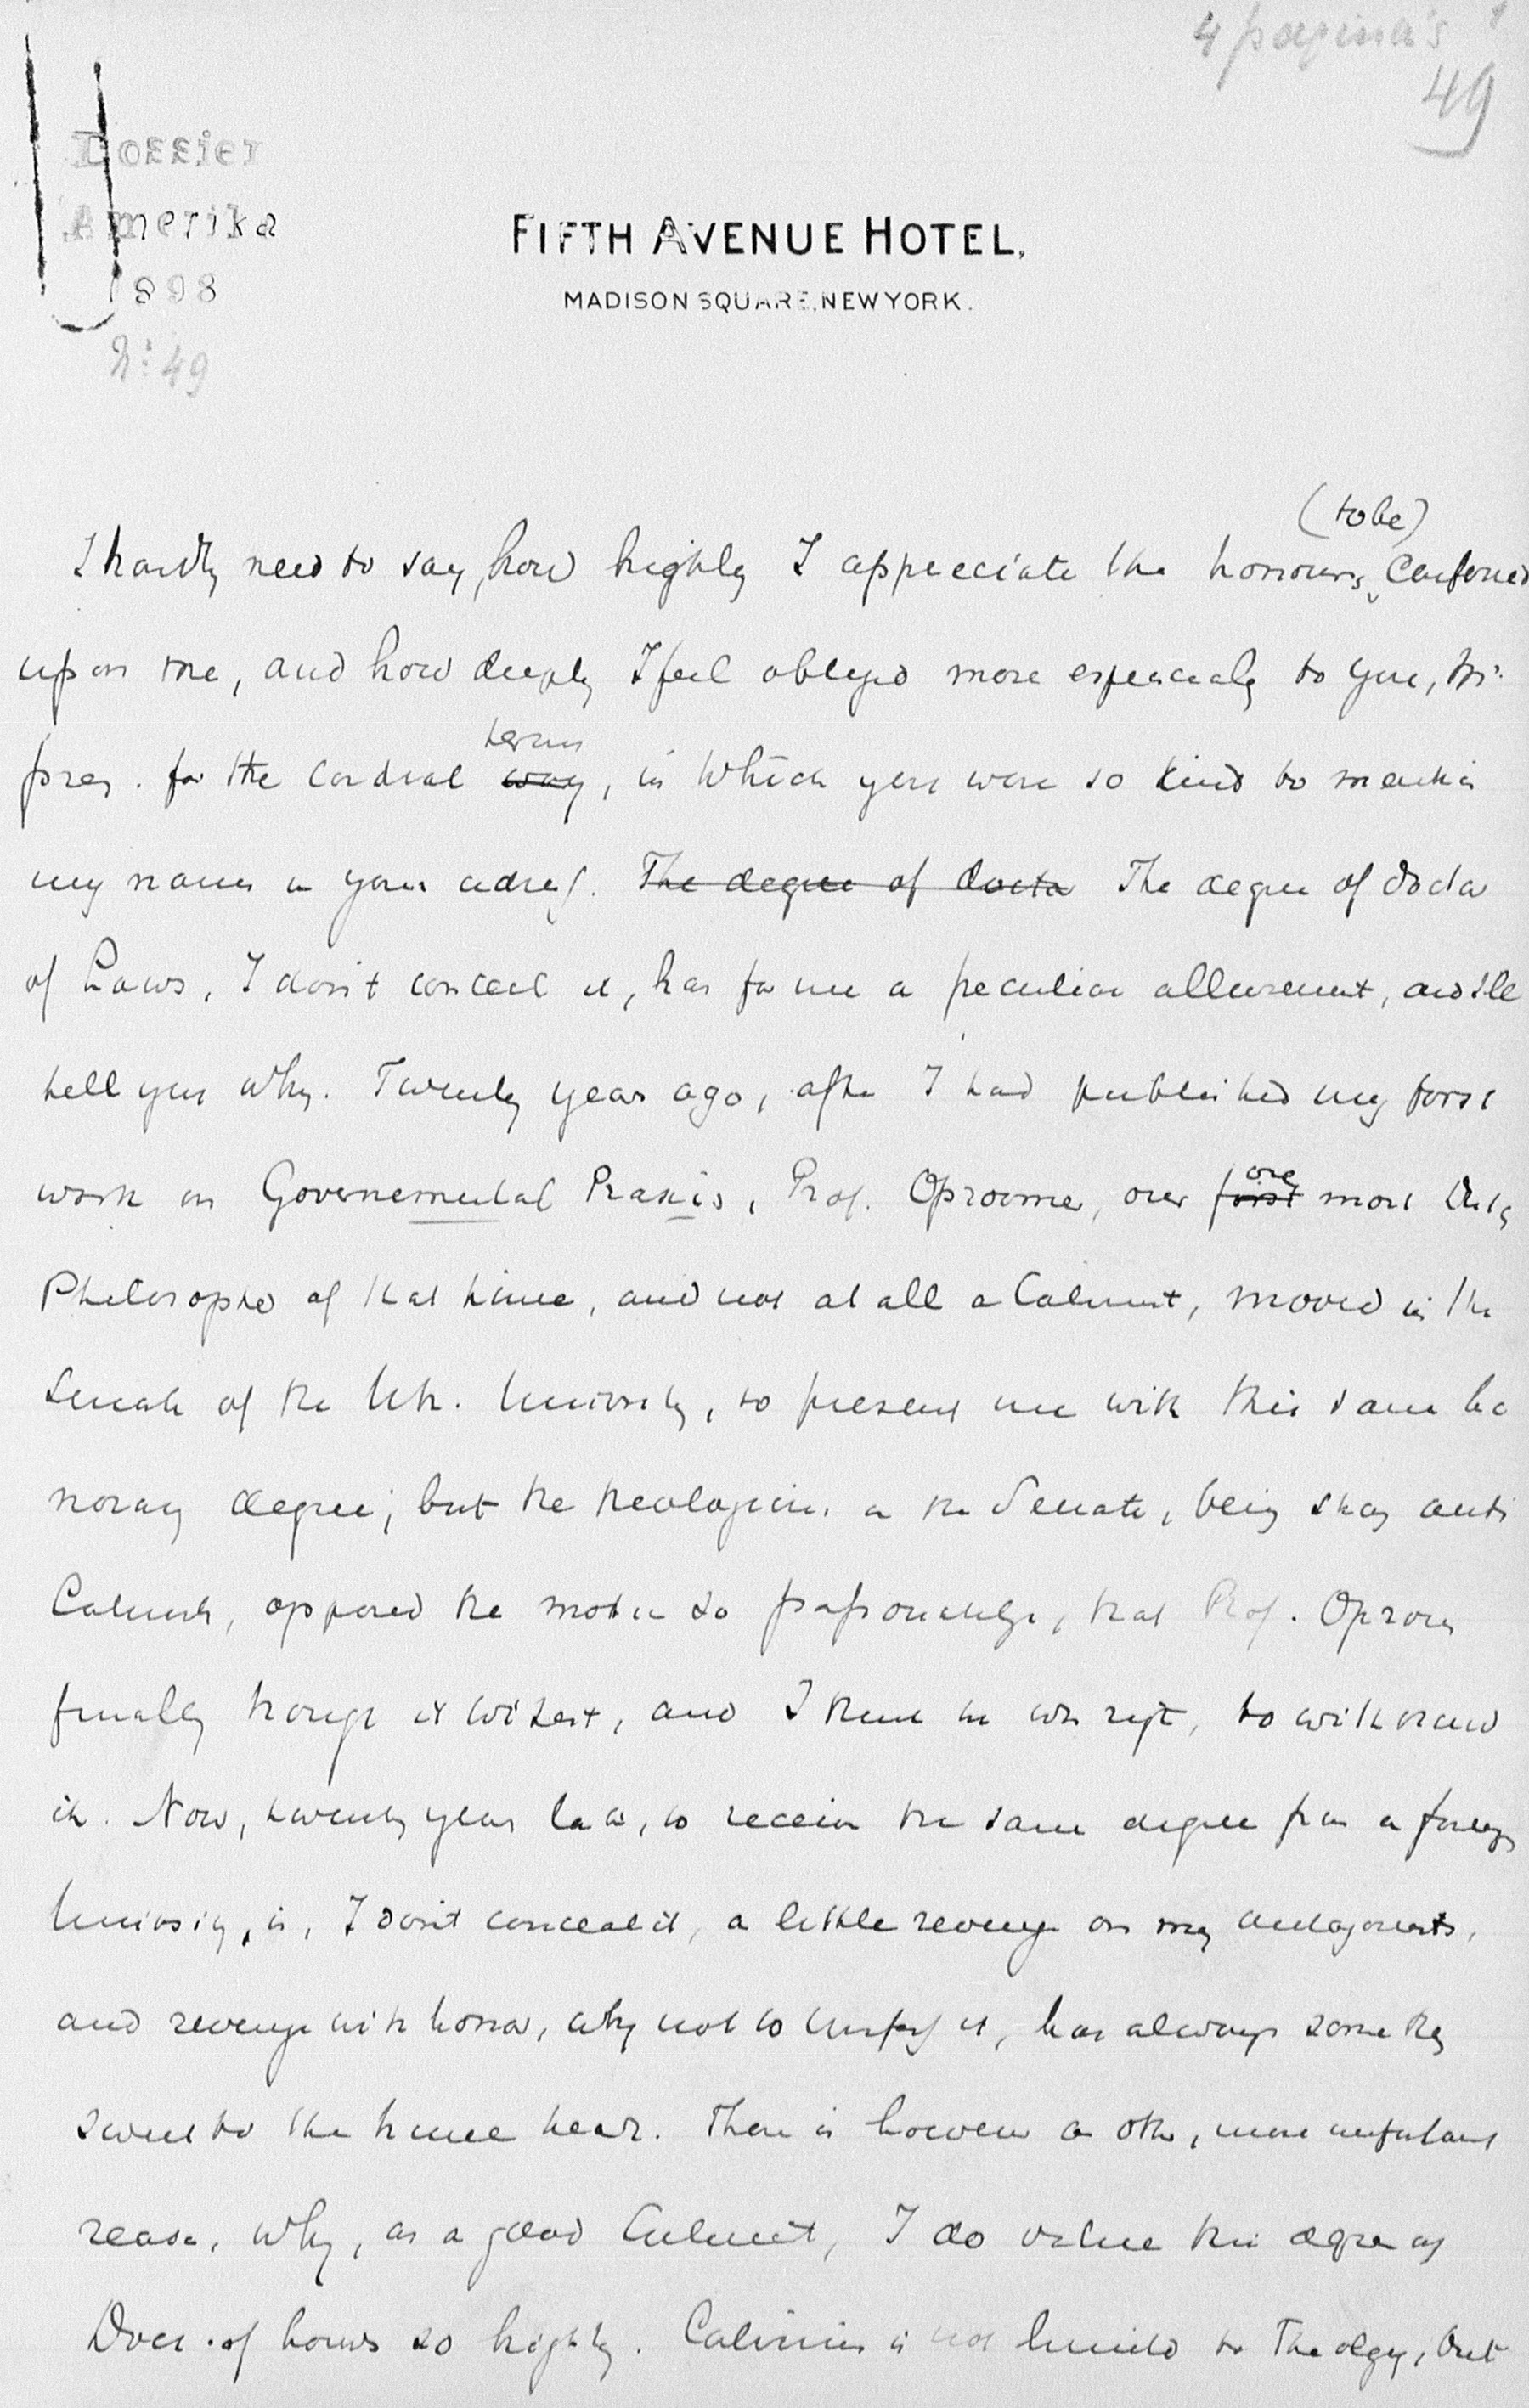 4 pagina's
49
Dossier
Amerika
1898
N: 49
FIFTH AVENUE HOTEL,
MADISON SQUARE, NEW YORK.
(to be)
I hardly need to say, how highly I appreciate the honours, Conferred
upon me, and how deeply I feel obliged more especialy to you, Mr.
terms
pres. for the Cordial way, in which you were so kind to mention
my name in your adress. The degree of docto The degree of doctor
of Laws, I don't conceal it, has for me a peculiar allurement, and I'll
tell you why. Twenty year ago, after I had published my first
ore
work on Governemental Praxis, Prof. Opzoomer, our first most Dutch
Philosopher of that time, and not at all a Calvinist, moved in the
Senate of the Utr. University, to present me with this same ho
norary degree; but the theologians in the Senate, being strong anti
Calvinists, opposed the motion so passionately, that Prof. Opzoom
finally thought it wisest, and I think he was right, to withdraw
it. Now, twenty years later, to receive the same degree from a foreign
University, is, I don't conceal it, a little revenge on my antagonists,
and revenge with honor, why not to confess it, has always something
sweet to the human heart. There is however an other, more important
reason, why, as a good Calvinist, I do value this degree of
Doct. of Laws so highly. Calvinism is not limited to Theology, but